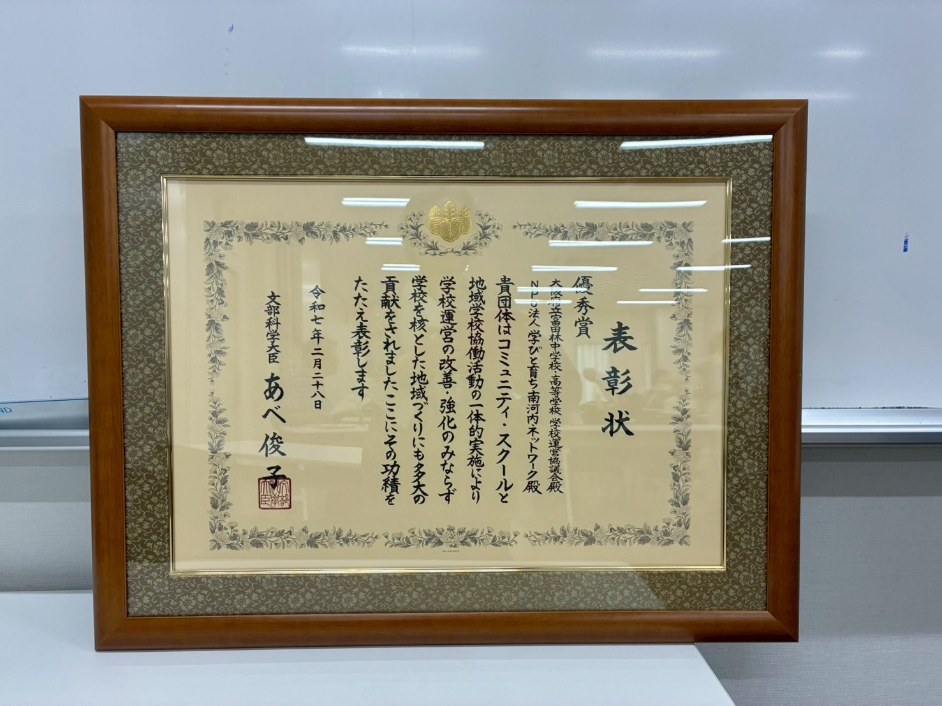 表彰状
優秀賞
大阪府立富田林中学校・高等学校 学校運営協議会殿
NPO法人 学びと育ち南河内ネットワーク殿
貴団体はコミュニティ・スクールと
地域学校協働活動の一体的実施により
学校運営の改善・強化のみならず
学校を核とした地域づくりにも多大の
貢献をされました、ここにその功績を
たたえ表彰します
令和七年二月二十八日
文部科学大臣 あべ俊子